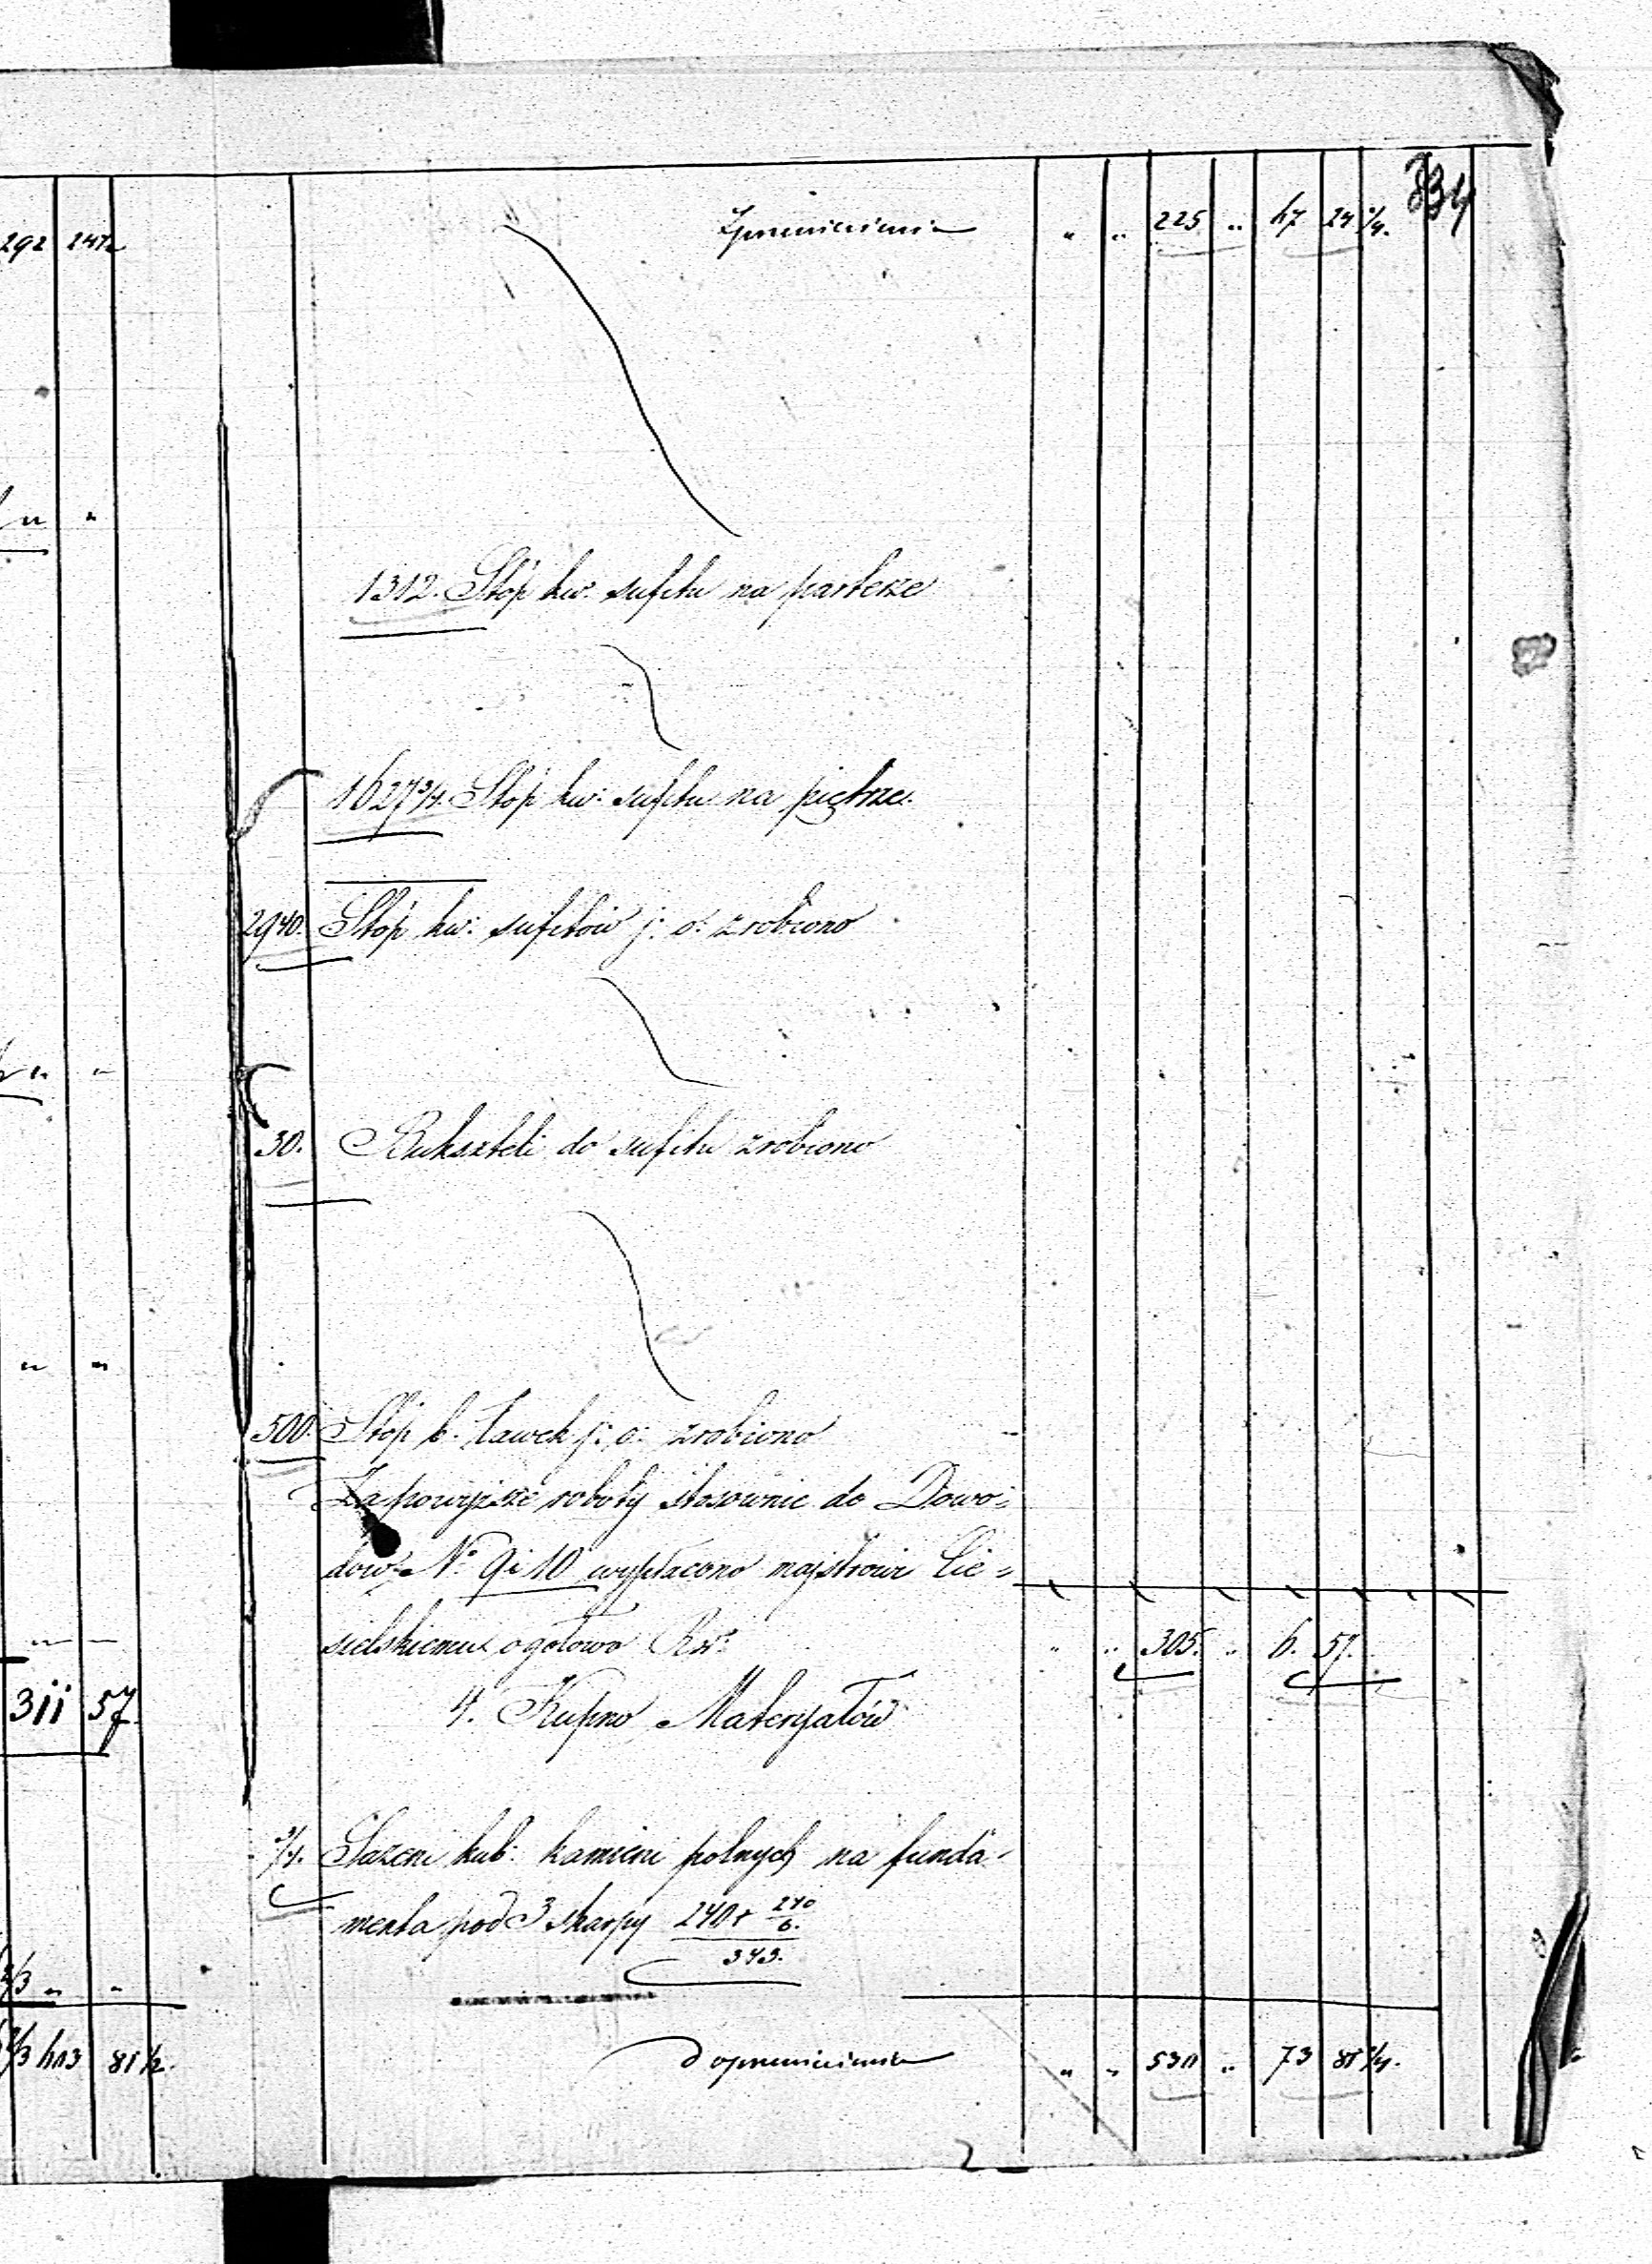 334
292 24½
Zprzeniesienia " " 225 " 67 24 ¼.
" "
1312. Stóp kw: sufitu na parterze
1627¾. Stóp kw: sufitu na piętrze.
2940. Stóp kw: sufitów j: o: zrobiono
" "
30. Bukszteli do sufitu zrobiono
" "
500. Stóp b. Ławek j: o: zrobiono
Za powyższe roboty stosownie do Dowo-
dów N° 9 i 10 wypłacono majstrowi Cie-
sielskiemu ogółowo Rs. " " 305. " 6. 57.
311 57
4. Kupno Materyałów
¾. Sążeni kub: kamieni polnych na funda-
menta pod 3 skarpy 240 + 240/6.
343.
⅔ " "
do przeniesienia " " 530 " 73 81 ¼.
⅔ 603 81½.
2